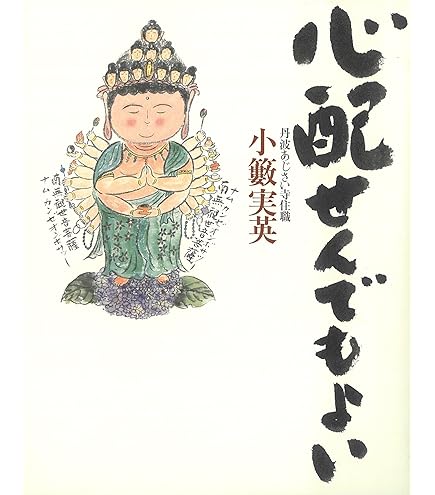 心配せんでもよい
丹波あじさい寺住職
小籔実英
ナムカンゼオンボサツ
南無観世音菩薩
南無観世音菩薩
ナムカンゼオンボサツ